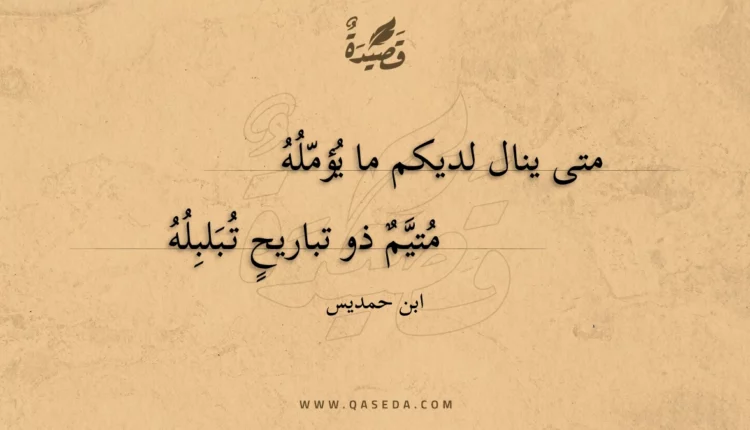 قَصِيدَةٌ
متى ينال لديكم ما يُؤمّلُهُ
مُتيَّمٌ ذو تباريحٍ تُبَلبِلُهُ
ابن حمديس
WWW.QASEDA.COM